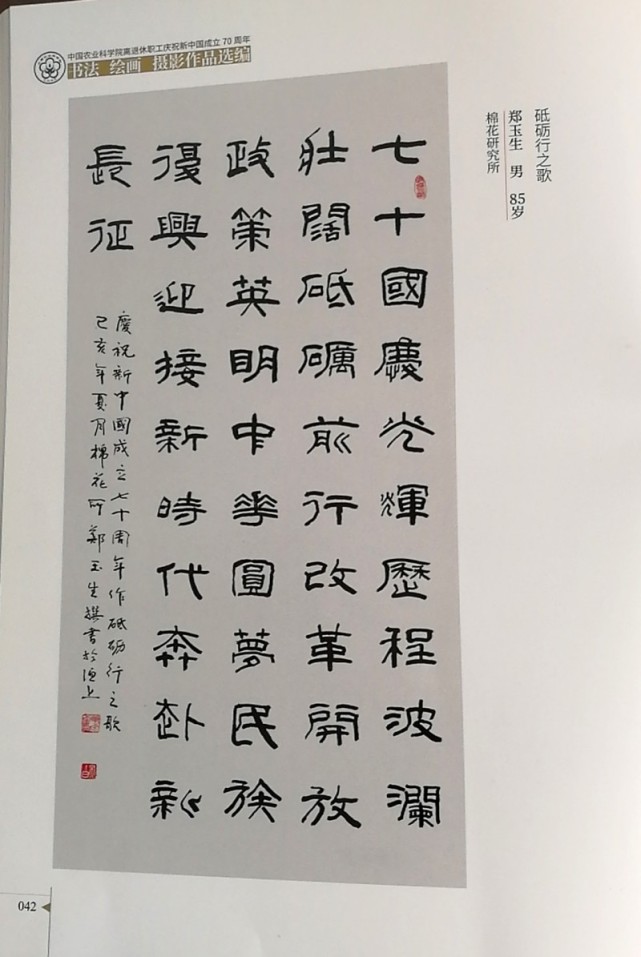 中国农业科学院离退休职工庆祝新中国成立 70 周年
书法 绘画 摄影作品选编
砥砺行之歌
郑玉生 男 85岁
棉花研究所
七十國慶光輝歷程波瀾
壯闊砥礪前行改革開放
政策英明中華圓夢民族
復興迎接新時代奔赴新
長征
慶祝新中國成立七十周年作砥砺行之歌
己亥年夏月棉花所鄭玉生撰書於洹上
042